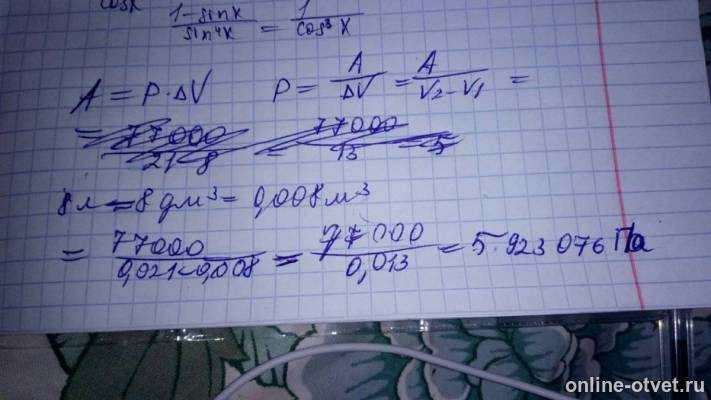 cosx
1-sinx / sin⁴x = 1 / cos³x
A = P·ΔV P = A / ΔV = A / V₂-V₁ =
= 77000 / 21-8 = 77000 / 13 = 5
8л = 8 дм³ = 0,008м³
= 77000 / 0,021-0,008 = 77000 / 0,013 = 5.923 076 Па
online-otvet.ru